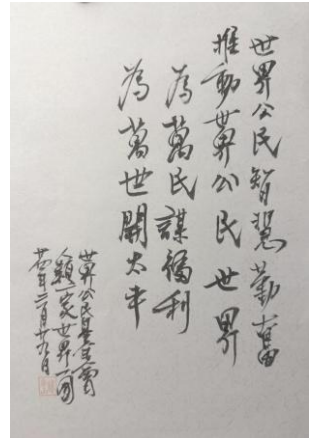 世界公民智慧勤奮
推動世界公民世界
為萬民謀福利
為萬世開太平
世界公民
人類一家世界一同
廿年二月廿九日